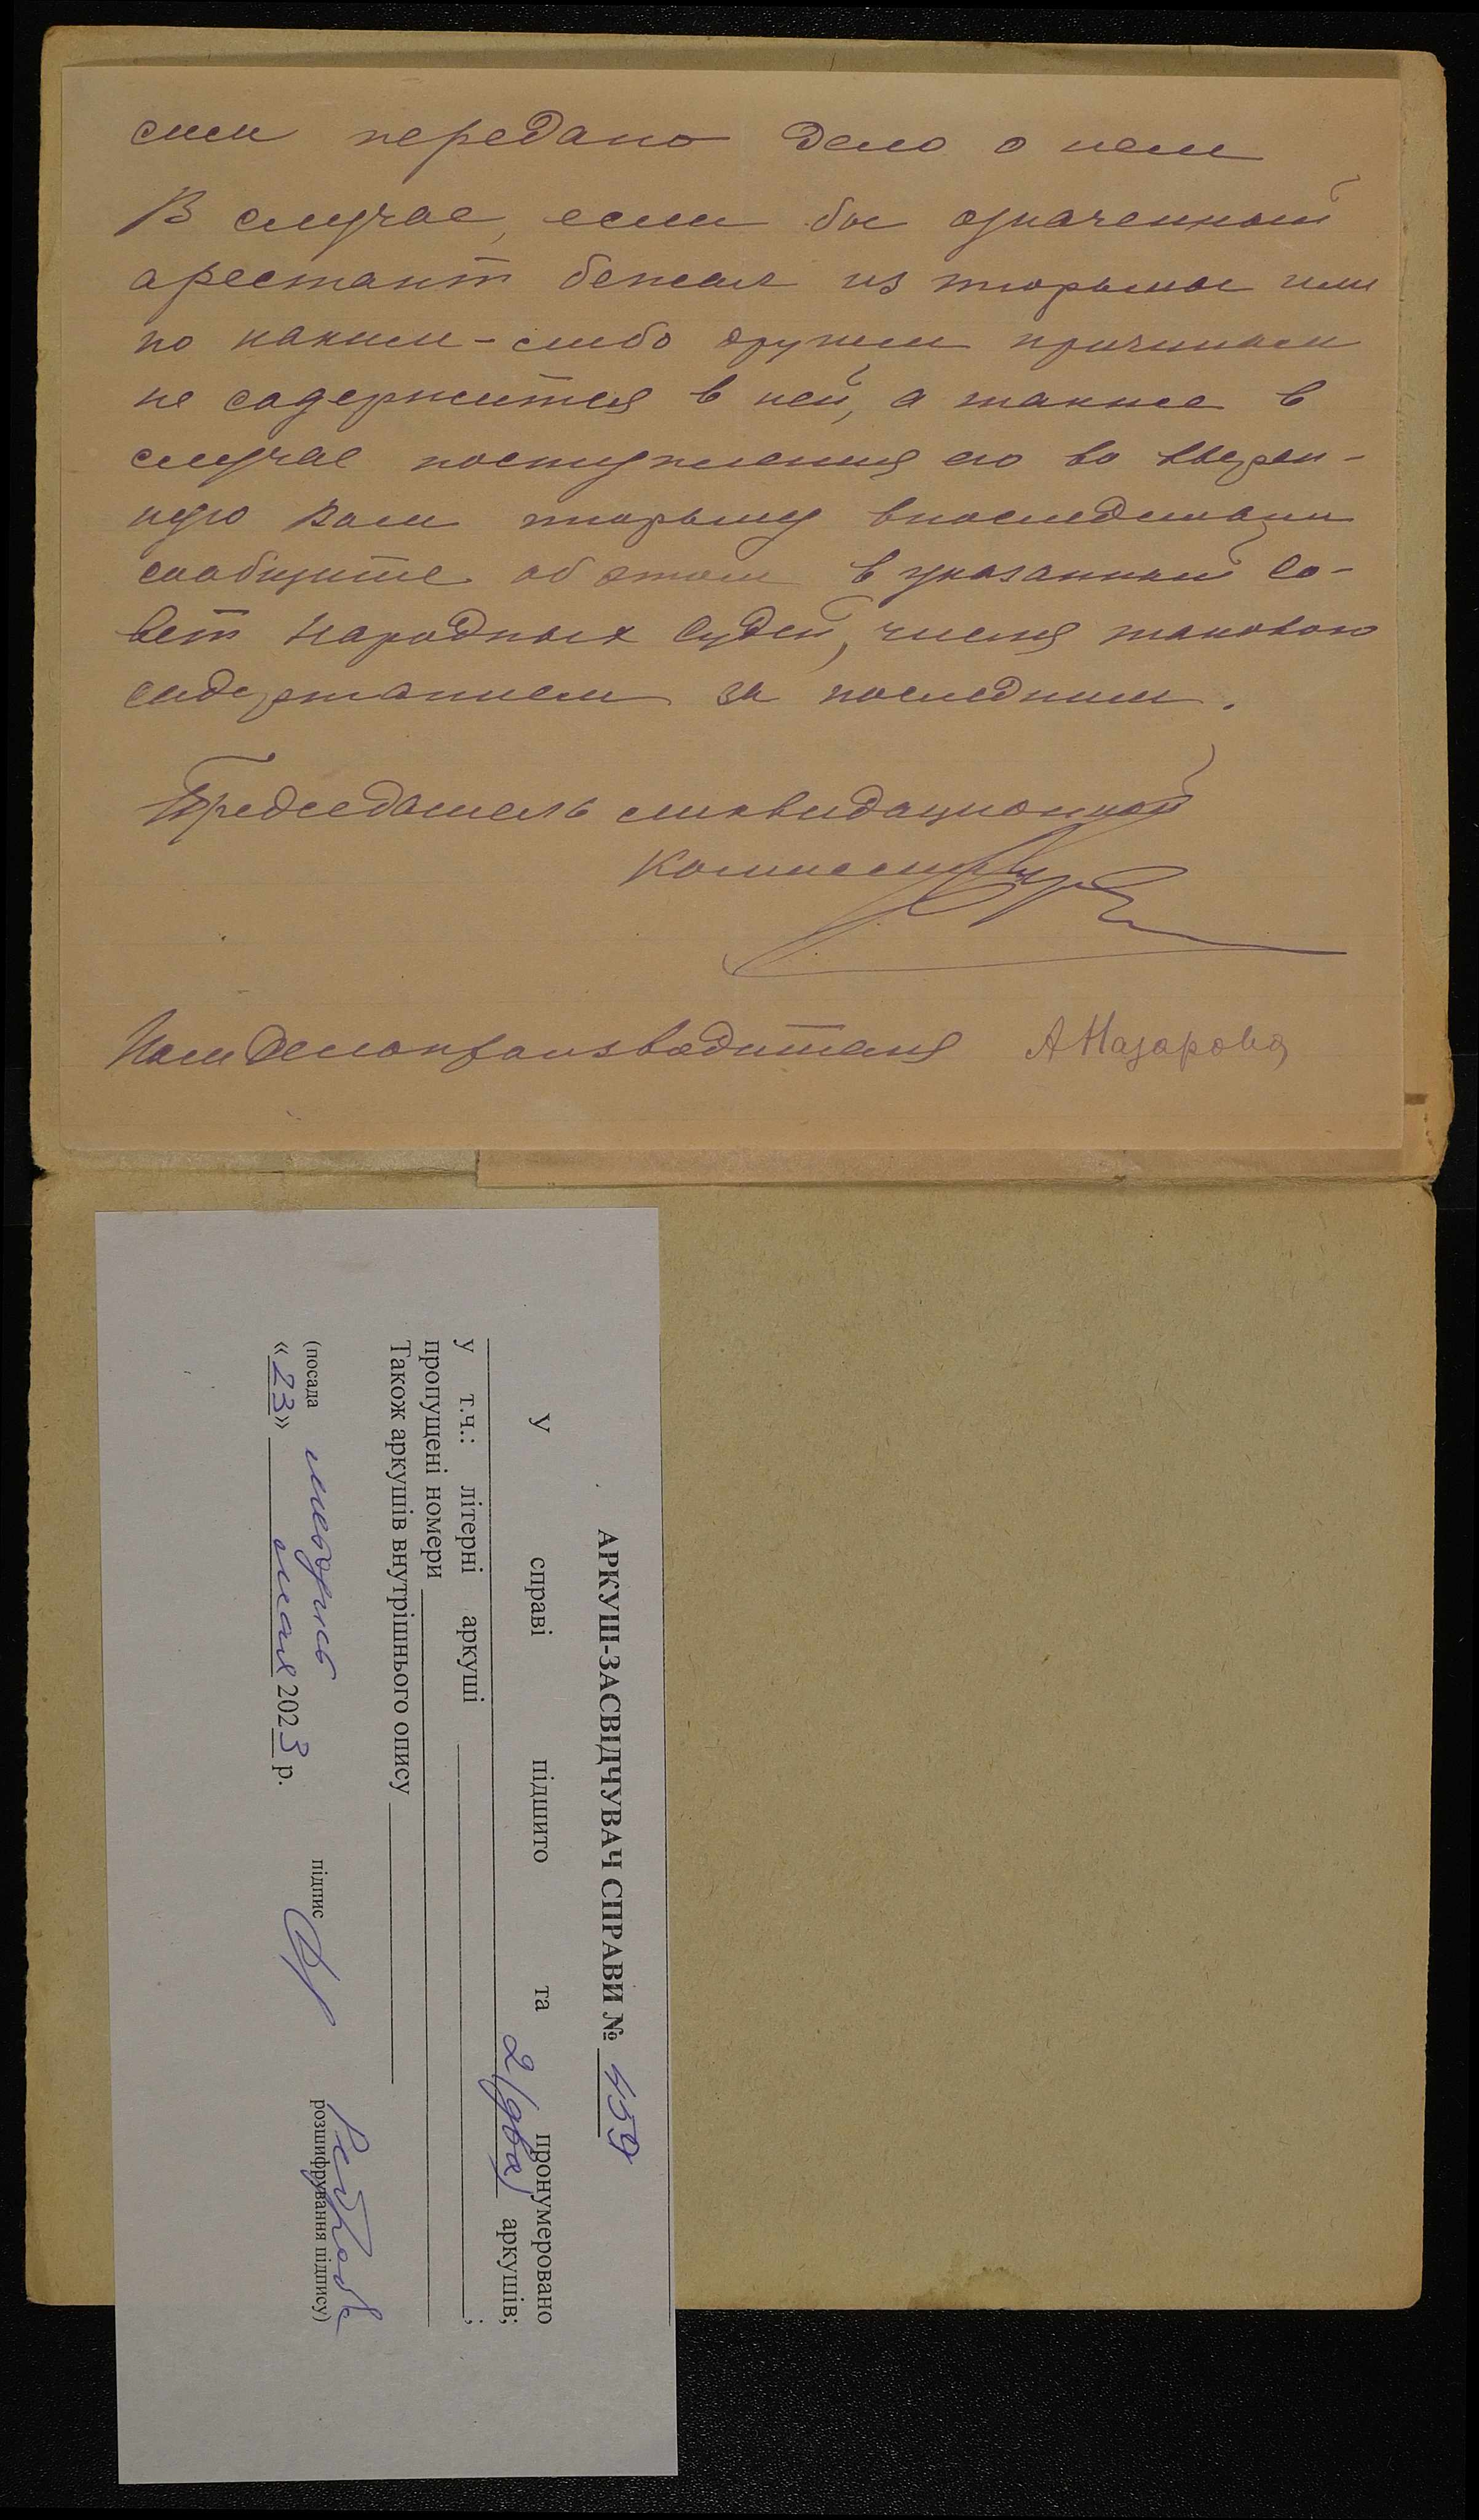 сии передано дело о нем
В случае, если бы означенный
арестант бежал из тюрьмы или
по каким-либо другим причинам
не содержится в ней, а также в
случае поступления его во вверен-
ную Вам тюрьму впоследствии
сообщите об этом в указанный Со-
вет Народных Судей, числя такового
содержанием за последним.
Председатель ликвидационной
Комиссии
Пом Делопроизводителя АНазарова
АРКУШ-ЗАСВІДЧУВАЧ СПРАВИ № 459
У справі підшито та пронумеровано
2 (два) аркушів;
у т.ч.: літерні аркуші ;
пропущені номери
Також аркушів внутрішнього опису
(посада підпис розшифрування підпису)
«23» мая 2023 р.